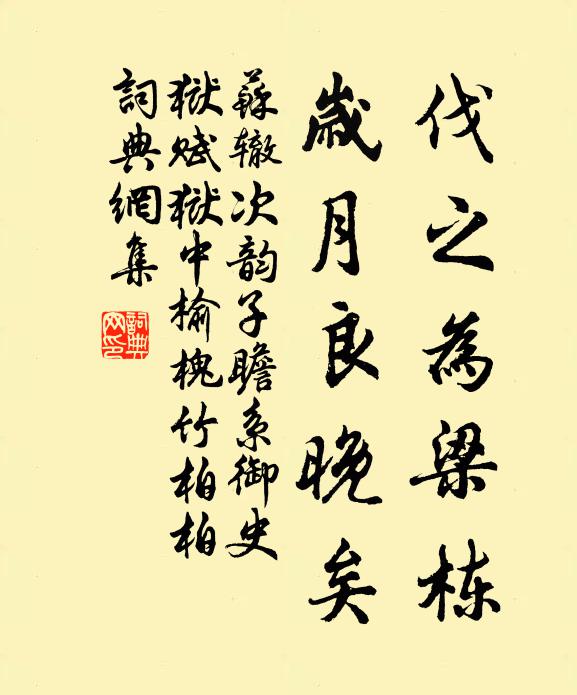 伐之為梁栋
歲月良晚矣
蘇辙次韵子瞻系御史
獄赋獄中榆槐竹柏柏
詞典網集
詞典
网印